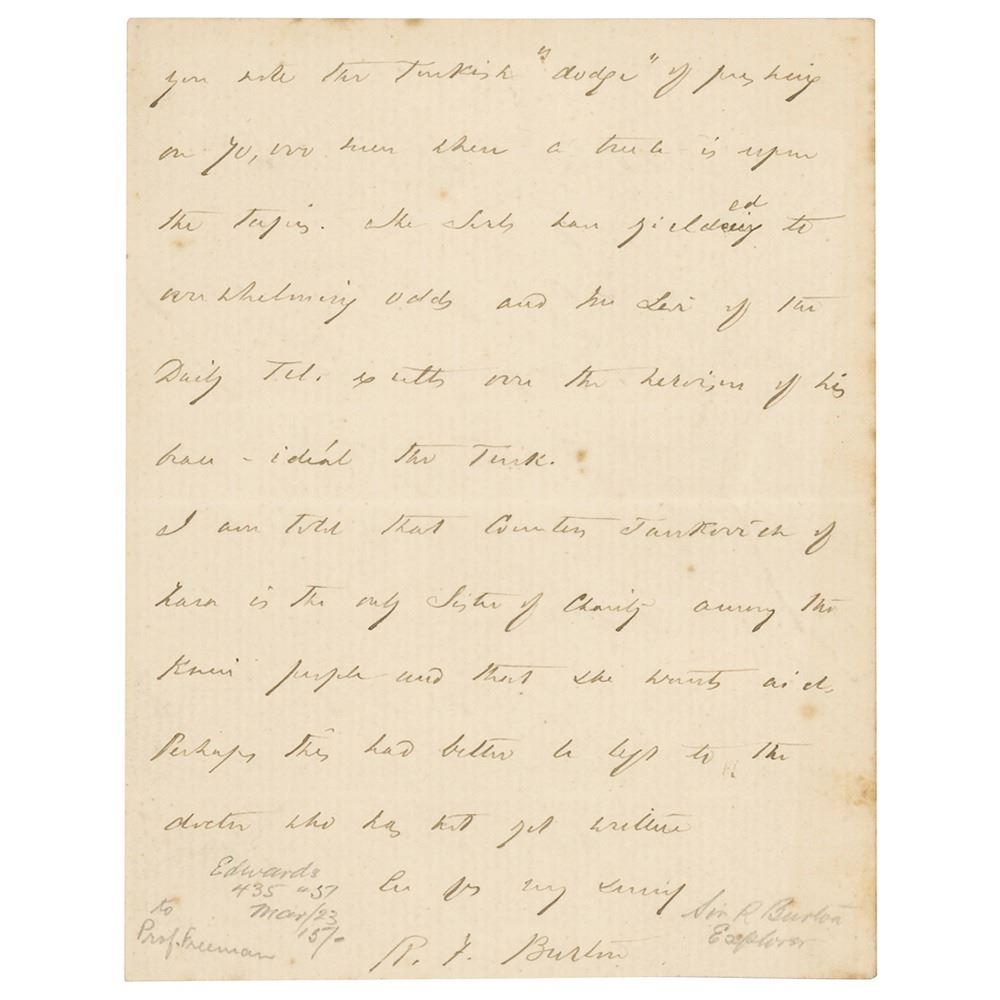 you note the Turkish "dodge" of pushing
on 70,000 men when a truce is upon
the tapis. The Serbs have yielding ed to
overwhelming odds and the Levi of the
Daily Tel. exults over the heroism of his
beau-idéal the Turk.
I am told that Countess Jankovich of
Zara is the only Sister of Charity among the
Knin people and that she wants aid.
Perhaps this had better be left to the
doctor who has not yet written
my
R. F. Burton
Edwards
435 "57
Mar/23
15/-
to
Prof. Freeman
Sir R Burton
Explorer